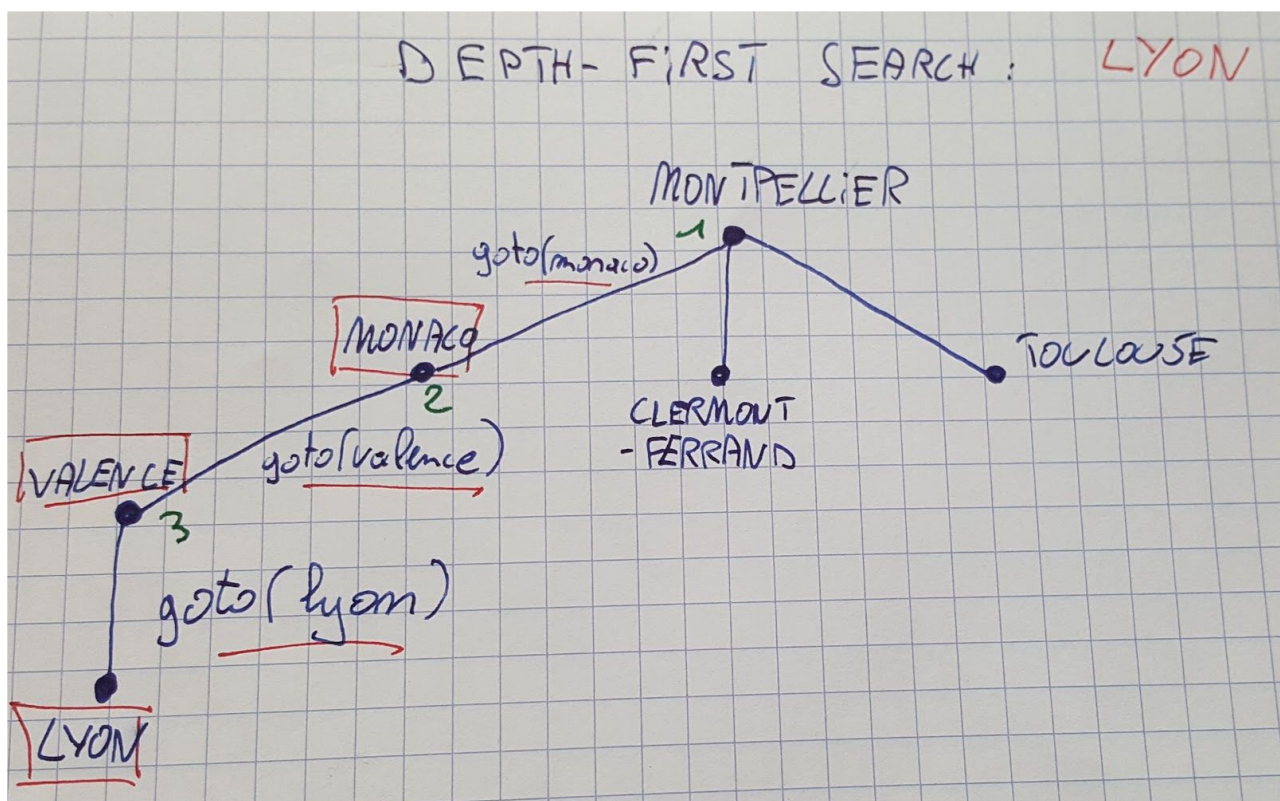 DEPTH-FIRST SEARCH: LYON
MONTPELLIER
1
goto(monaco)
MONACO
2
TOULOUSE
CLERMONT
-FERRAND
goto(valence)
VALENCE
3
goto(lyon)
LYON